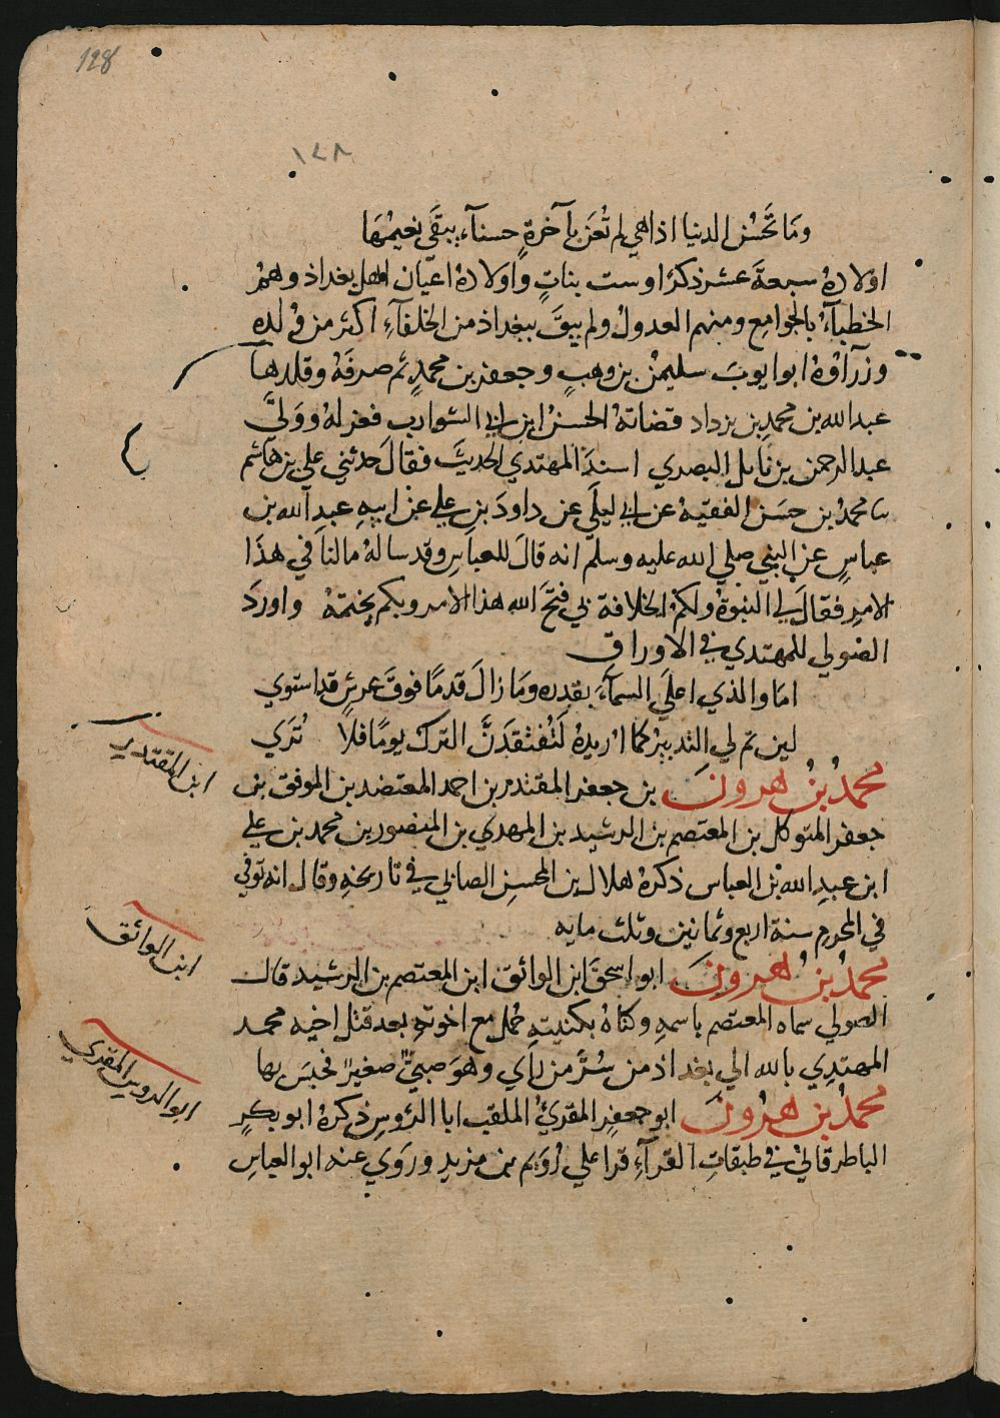 128
١٢٨
وَمَا تَحْسُن الدنيا اذا هي لم تُعَن بآخرةٍ حسنآء يبقَى نعيمُهَا
اولادهُ سبعةَ عشر ذكرًا وست بناتٍ واولادهُ اعيان اهل بغداذ وهمُ
الخطبآءُ بالجوامِع ومنهم العدولُ ولم يبقَ ببغداذ من الخلفآءِ اكثر من وُلده
وزرآؤهُ ابو ايوبَ سليمٰنُ بن وهبٍ وجعفر بن محمدٍ ثم صرفَهُ وقلدها
عبد الله بن محمدِ بن يزداد قضاتهُ الحسنُ ابن ابي الشوارب فعزلهُ وولَّى
عبد الرحمن بن نايل البصري اسندَ المهتدي الحديثَ فقالَ حدثني علي بن هاشم
ثنا محمدُ بن حسَن الفقيهُ عن ابي ليلَى عن داودَ بن علي عن ابيهِ عبد الله بن
عباسٍ عن النبي صلي الله عليه وسلم انه قالَ للعباسِ وقد سالهُ ما لنا في هذَا
الامرِ فقالَ لي النبوةُ ولكمُ الخلافة بي فتحَ الله هذا الامر وبكم يختمهُ واوردَ
الصولي للمهتدي في الاوراق
امَا والذي اعلَي السمآءَ بقدره وما زالَ قدمًا فوقَ عرشٍ قد استوي
لين تم لي التدبيرُ كما اريدهُ لَتُفتقدَنَّ الترك يومًا فلا تُرَي
محمدُ بنُ هرونَ بن جعفر المقتدر بن احمد المعتضد بن الموفق بن
جعفر المتوكل بن المعتصم بن الرشيد بن المهدي بن المنصور بن محمد بن علي
ابن عبد الله بن العباس ذكرهُ هلال بن المحسن الصابي في تاريخهِ وقال انه توفي
في المحرم سنة اربع وثمانين وثلث مايه
محمدُ بنُ هرونَ ابو اسحقَ ابن الواثق ابن المعتصم بن الرشيد قال
الصولي سماه المعتصم باسمهِ وكناهُ بكنيتهِ حُمل مع اخوتهِ بعد قتل اخيه محمد
المهتدِي بالله الي بغداذ من سُرَّ من رَاي وهوَ صبيٌ صغيرٌ فحبسَ بها
محمدُ بن هرونَ ابو جعفرٍ المقريُ الملقب ابا الروسِ ذكرهُ ابو بكرٍ
الباطرقاني في طبقاتِ القرآءِ قرا علي رُوَيم بن مزيدٍ وروَي عنه ابو العباسِ
ابن المقتدر
ابن الواثق
ابو الروس المقري